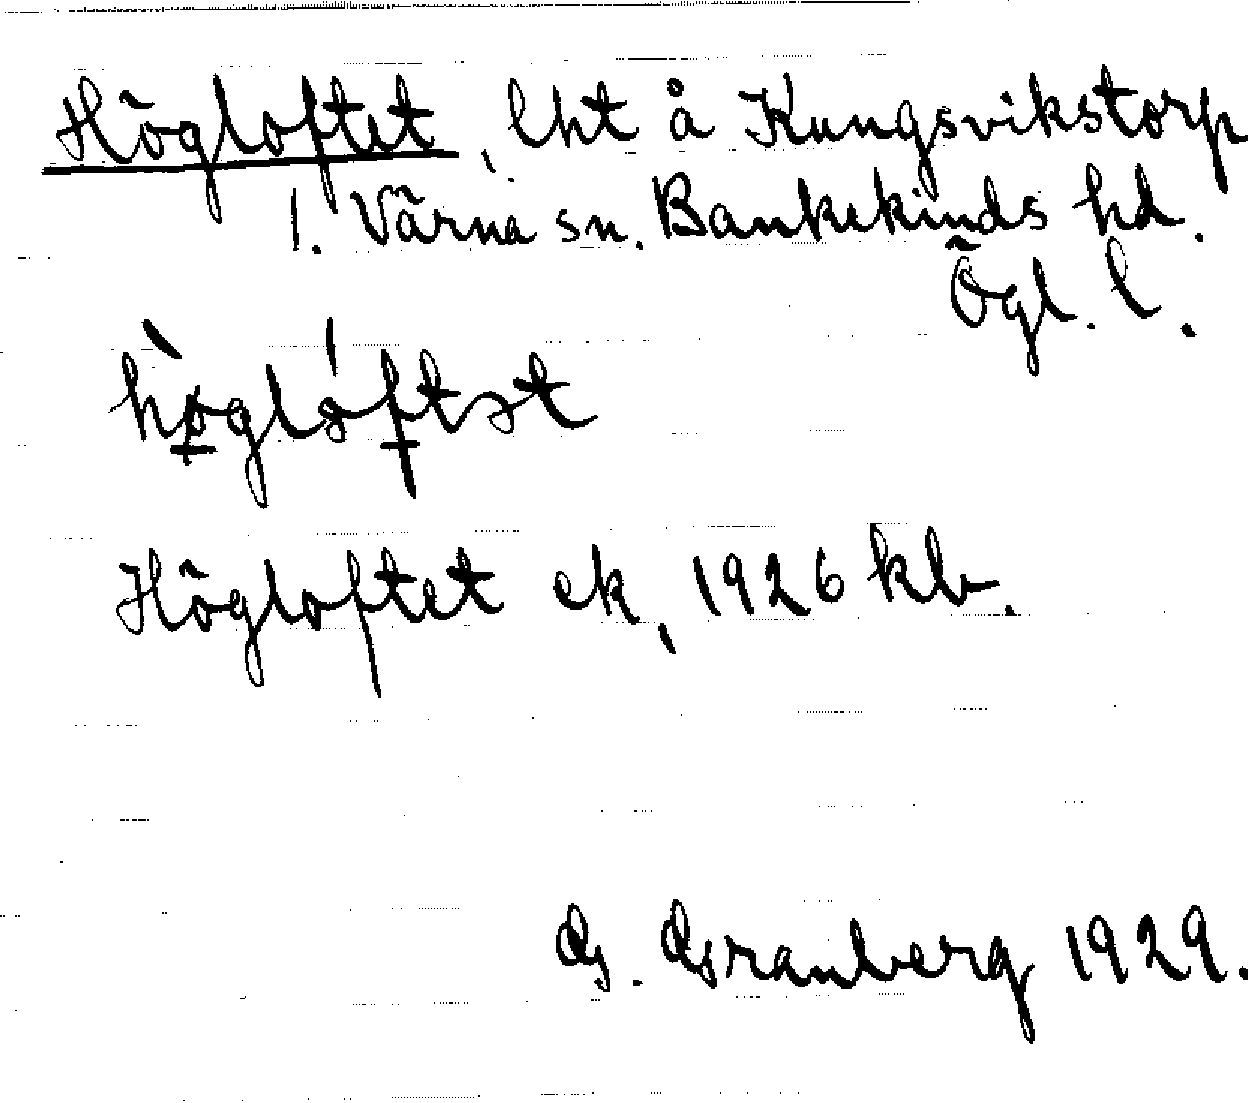 Högloftet, lht å Kungsvikstorp
1. Värna sn. Bankekinds hd.
Ögl. l.
Högloftet ek, 1926 kb.
G. Granberg 1929.